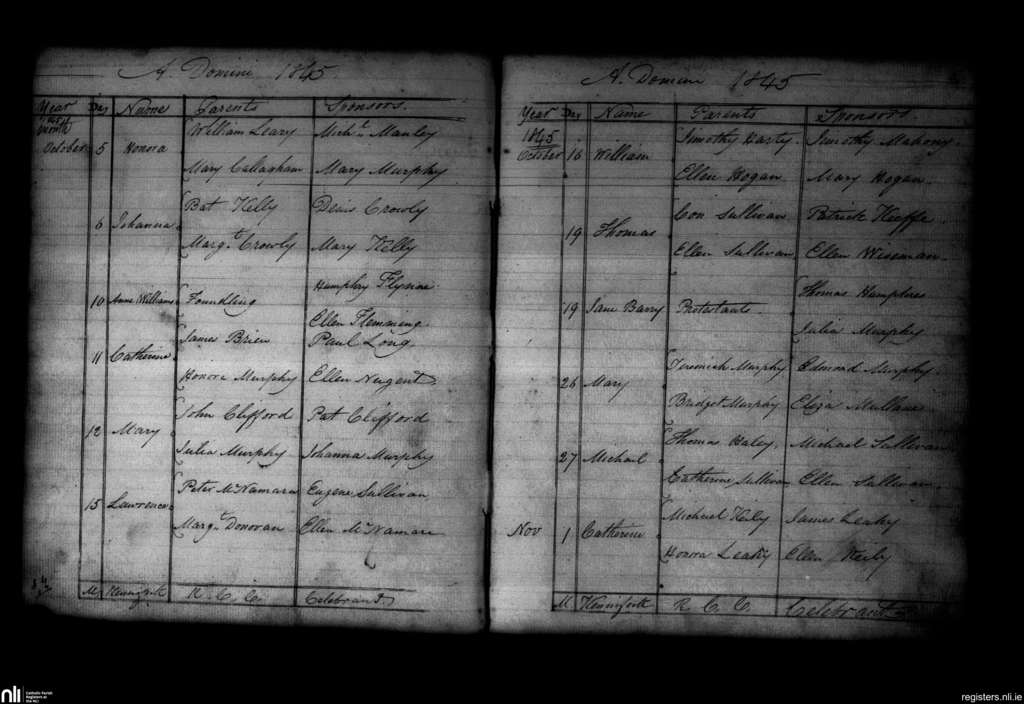 A. Domini 1845.
Year Day Name Parents Sponsors.
month William Leary Mich.l Manley
October 5 Honora
Mary Callaghan Mary Murphy
Pat Kelly Denis Crowly
6 Johanna
Marg.t Crowly Mary Kelly
Humphry Flynne
10 Anne Williams Foundling
Ellen Flemming
James Brien Paul Long
11 Catherine
Honora Murphy Ellen Nugent
John Clifford Pat Clifford
12 Mary
Julia Murphy Johanna Murphy
Peter McNamara Eugene Sullivan
15 Lawrence
Marg.t Donovan Ellen McNamara
M R. C. C. Celebrant
A. Domini 1845
Year Day Name Parents Sponsors.
1845 Timothy Harty Timothy Mahony
October 16 William
Ellen Hogan Mary Hogan
Con Sullivan Patrick Keeffe
19 Thomas
Ellen Sullivan Ellen Wiseman
Thomas Humphres
19 Jane Barry Protestants
Julia Murphy
Jeremiah Murphy Edmond Murphy
26 Mary
Bridget Murphy Eliza Mullane
Thomas Haley Michael Sullivan
27 Michael
Catherine Sullivan Ellen Sullivan
Michael Kiely James Leahy
Nov 1 Catherine
Honora Leahy Ellen Kiely
M R C C Celebrant
nli
Catholic Parish
Registers at
the NLI
registers.nli.ie